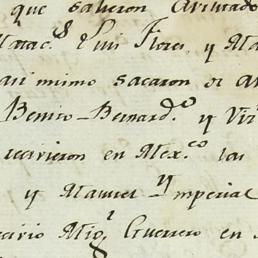 que salieron
Marac.s Luis Flores, y Ma
asi mimo sacaron de a
Benito Bernard.o y Vir
recivieron en Mex.co las
y Manuel Ymperial
Mig.l Guerrero en